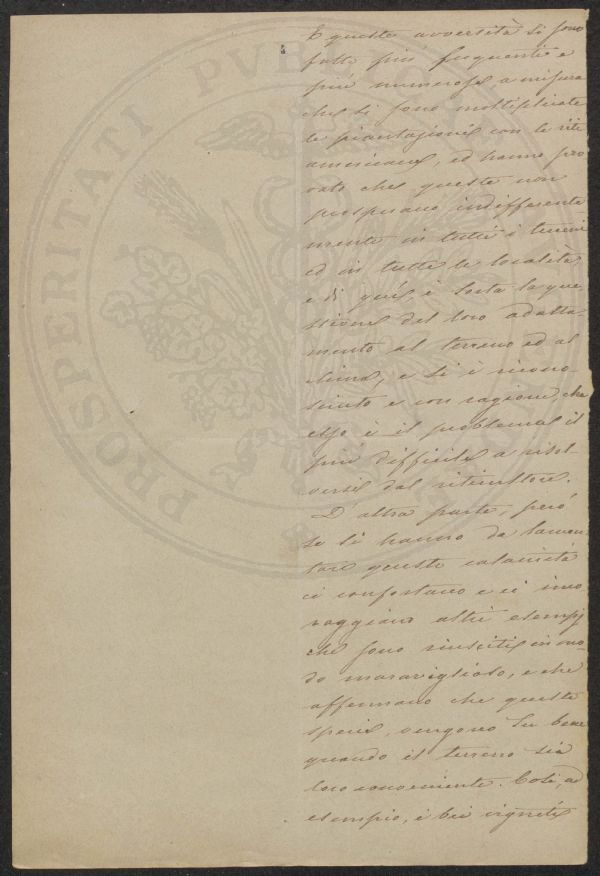 E queste avversità si sono
fatte più frequenti e
più numerose a misura
che si sono moltiplicate
le piantagioni con le viti
americane, ed hanno pro
vato che queste non
prosperano indifferente
mente in tutti i terreni
ed in tutte le località
e di qui, è sorta la que
stione del loro adatta-
mento al terreno ed al
clima, e si è ricono-
sciuto e con ragione, che
esso è il problema il
più difficile a risol-
versi dal viticultore.
D'altra parte, però
se si hanno da lamen
tare queste calamità
ci confortano e ci inco
raggiano altri esempj
che sono riusciti in mo
do maraviglioso, e che
affermano che queste
specie, vengono su bene
quando il terreno sia
loro conveniente. Così, ad
esempio, i bei vigneti
PROSPERITATI PVBLICAE